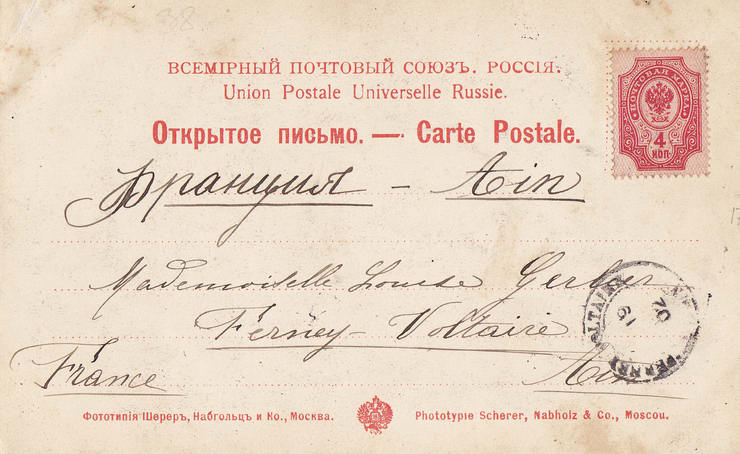 ВСЕМІРНЫЙ ПОЧТОВЫЙ СОЮЗЪ. РОССІЯ.
Union Postale Universelle Russie.
Открытое письмо. — Carte Postale.
ПОЧТОВАЯ МАРКА
4
КОП.
Франция - Ain
Mademoiselle Louise Gerber
Ferney-Voltaire
France
Ain
Фототипія Шереръ, Набгольцъ и Ко., Москва.
Phototypie Scherer, Nabholz & Co., Moscou.